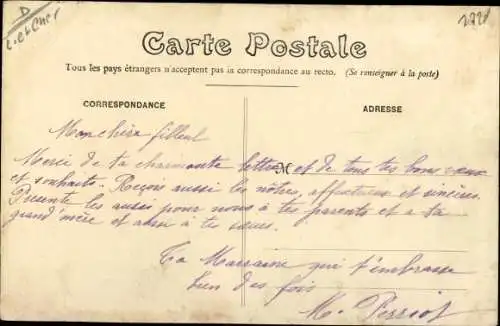 D
2221
Carte Postale
Tous les pays étrangers n'acceptent pas la correspondance au recto. (Se renseigner à la poste)
CORRESPONDANCE
ADRESSE
Mon chère filleul
Merci de ta charmante lettre et de tous tes bons vœux
et souhaits. Reçois aussi les nôtres, affectueux et sincères.
Présente les aussi pour nous à tes parents et a ta
grand'mère et aussi à tes sœurs.
Ta Marraine qui t'embrasse
bien des fois
M. Perriot